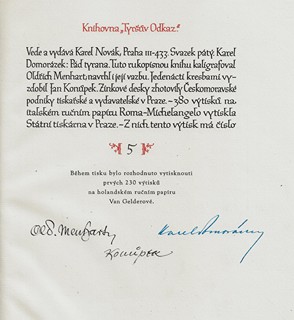 Knihovna „Tyršův Odkaz."
Vede a vydává Karel Novák, Praha III-433. Svazek pátý. Karel
Domorázek: Pád tyrana. Tuto rukopisnou knihu kaligrafoval
Oldřich Menhart; navrhl i její vazbu. Jedenácti kresbami vy-
zdobil Jan Konůpek. Zinkové desky zhotovily Českomoravské
podniky tiskařské a vydavatelské v Praze. ~ 380 výtisků na
italském ručním papíru Roma-Michelangelo vytiskla
Státní tiskárna v Praze. ~ Z nich tento výtisk má číslo
5
Během tisku bylo rozhodnuto vytisknouti
prvých 230 výtisků
na holandském ručním papíru
Van Gelderově.
Old. Menhart
Konůpek
Karel Domorázek